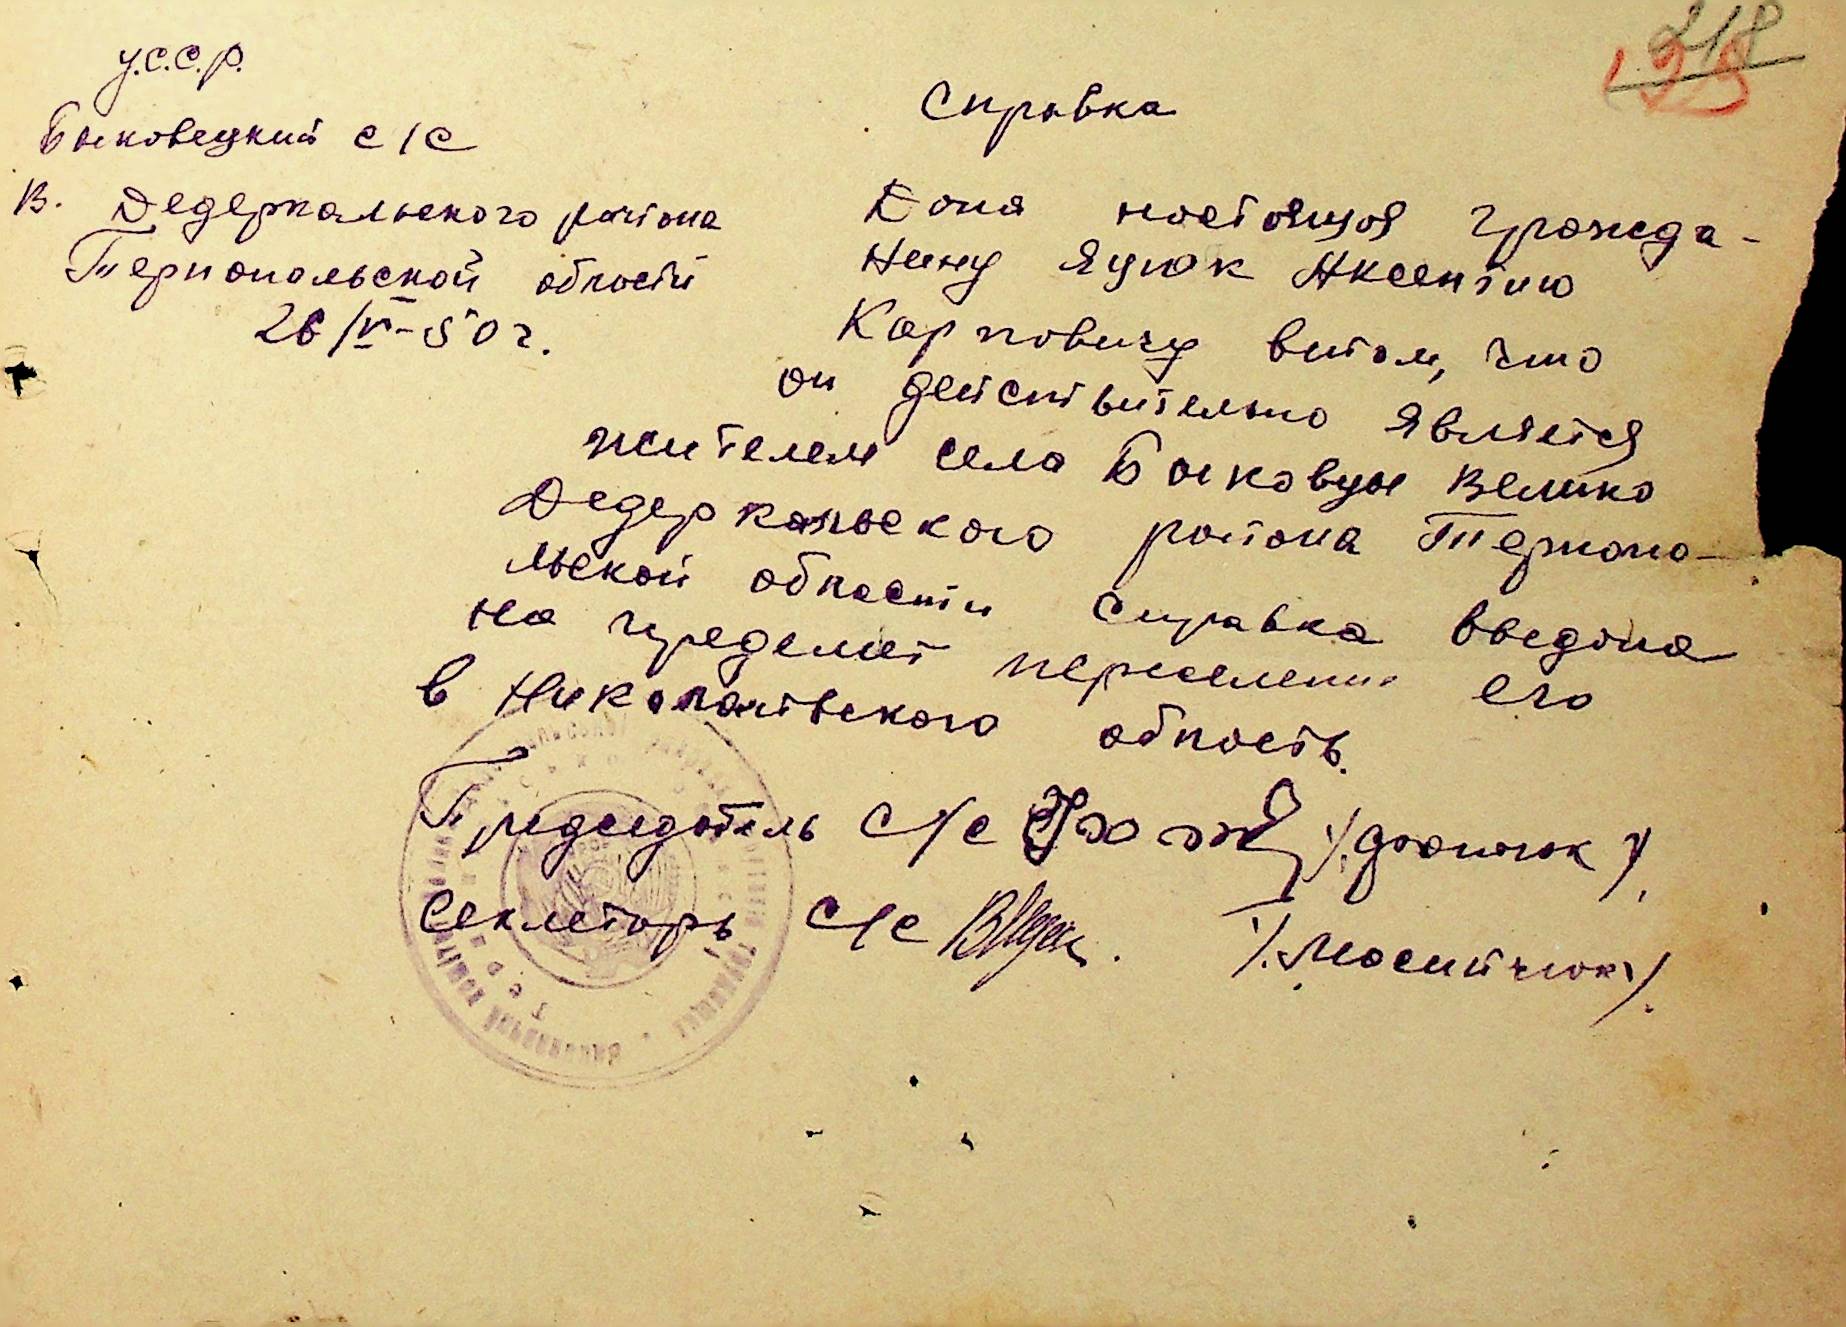 218
У.С.С.Р.
Быковецкий с/с
В. Дедеркальского района
Тернопольской области
26/VI-50 г.
Справка
Дана настоящая гражда-
нину Яцюк Аксентию
Карповичу витом, что
он действительно является
жителем села Быковцы Велико
Дедеркальского района Тернопо-
льской области справка введана
на предмет переселения его
в Николаевского область.
Председатель с/с
Секлетарь с/с /. Мосийчюк /.